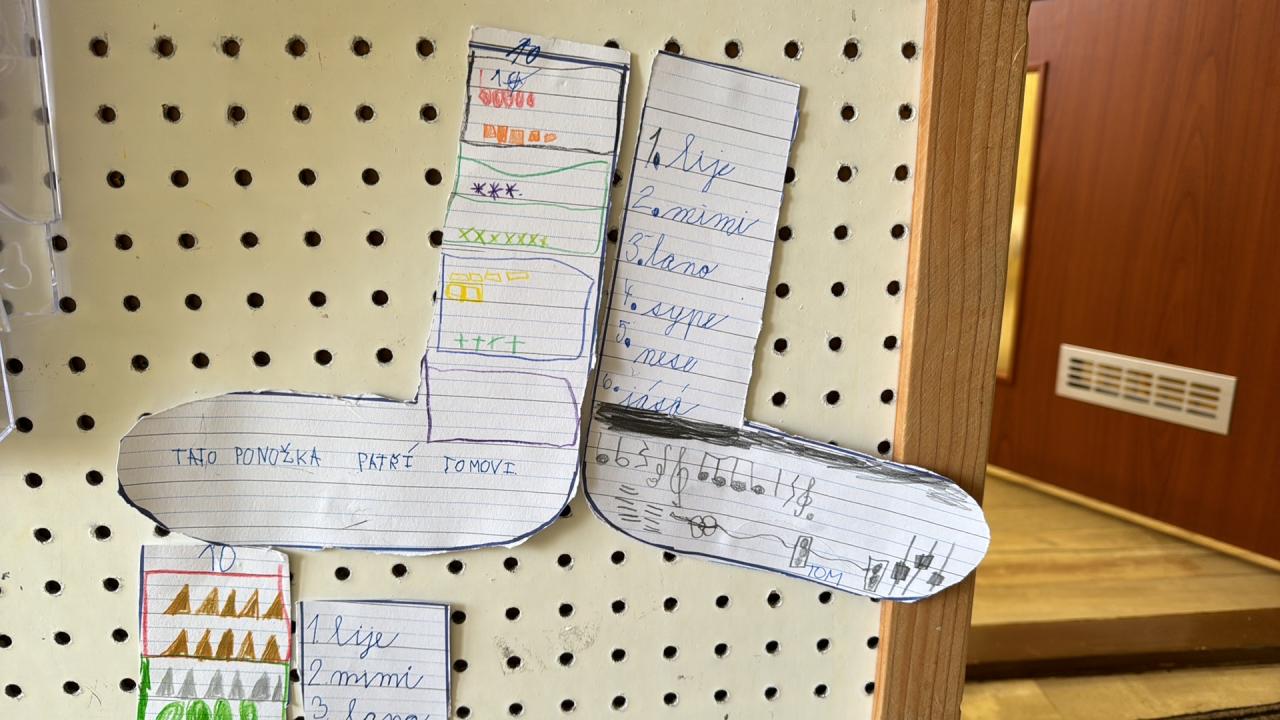 10
10
TATO PONOŽKA PATŘÍ TOMOVI.
1. lije
2. mimi
3. lano
4. sype
5. nese
6. jásá
TOM
10
1 lije
2 mimi
3 lano